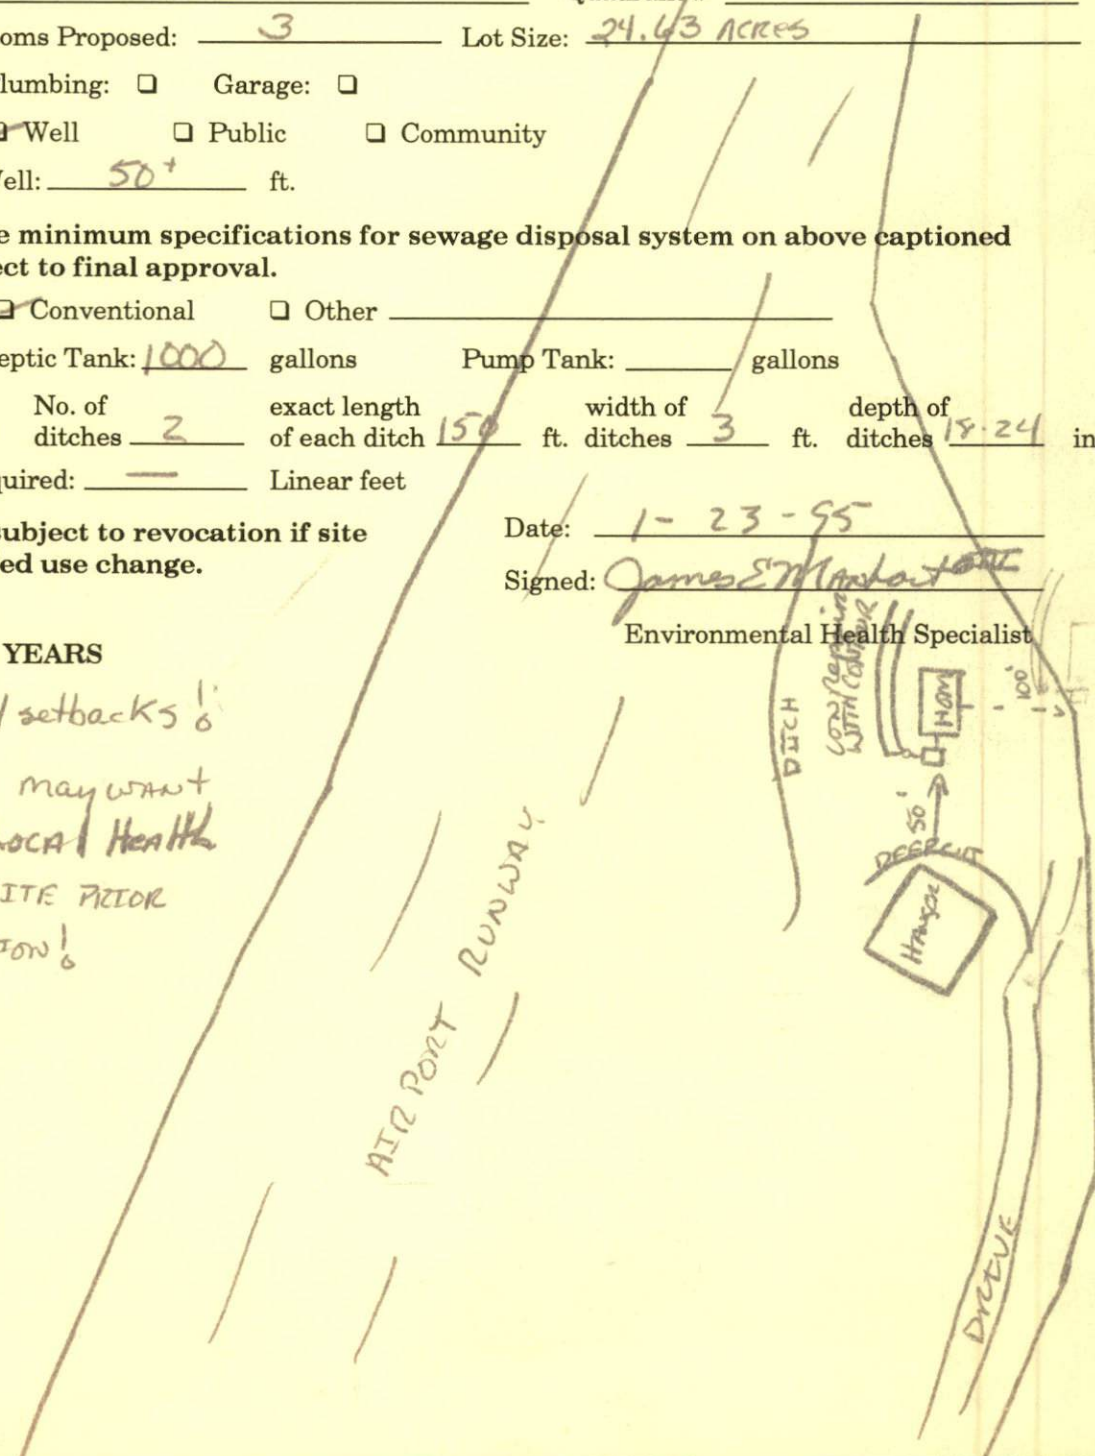 oms Proposed: 3 Lot Size: 24.63 ACRES
lumbing: ❏ Garage: ❏
Well ❏ Public ❏ Community
ell: 50+ ft.
e minimum specifications for sewage disposal system on above captioned
ect to final approval.
Conventional ❏ Other
eptic Tank: 1000 gallons Pump Tank: gallons
No. of exact length width of depth of
ditches 2 of each ditch 150 ft. ditches 3 ft. ditches 18-24 in
quired: — Linear feet
subject to revocation if site
ed use change.
Date: 1-23-95
Signed: James E
Environmental Health Specialist
YEARS
/ setbacks!
may want
LOCAl HeAlth
ITE PRIOR
ION!
DITCH
WITH
HOM
100'
50'
DEEP CUT
HANGOR
AIRPORT RUNWAY
DRIVE